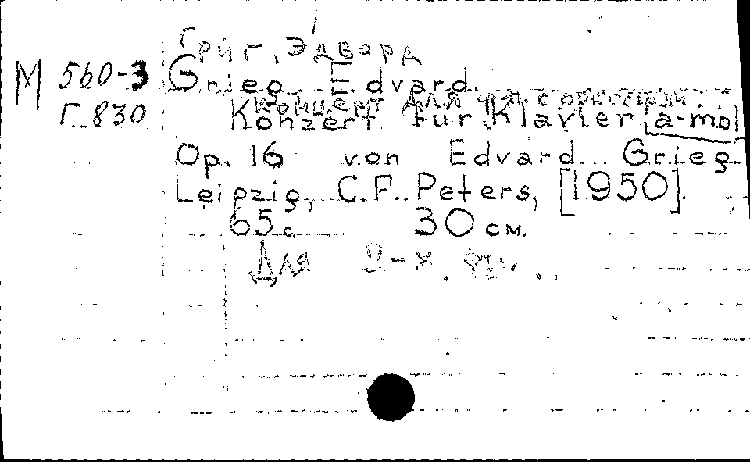 Григ, Эдвард
М 560-3 Grieg Edvard.
Концерт для ф-п. с оркестром.
Г. 830 Konzert für Klavier [a-mo]
Op. 16 von Edvard Grieg
Leipzig, C.F. Peters, [1950].
65 с 30 см.
Для 2-х